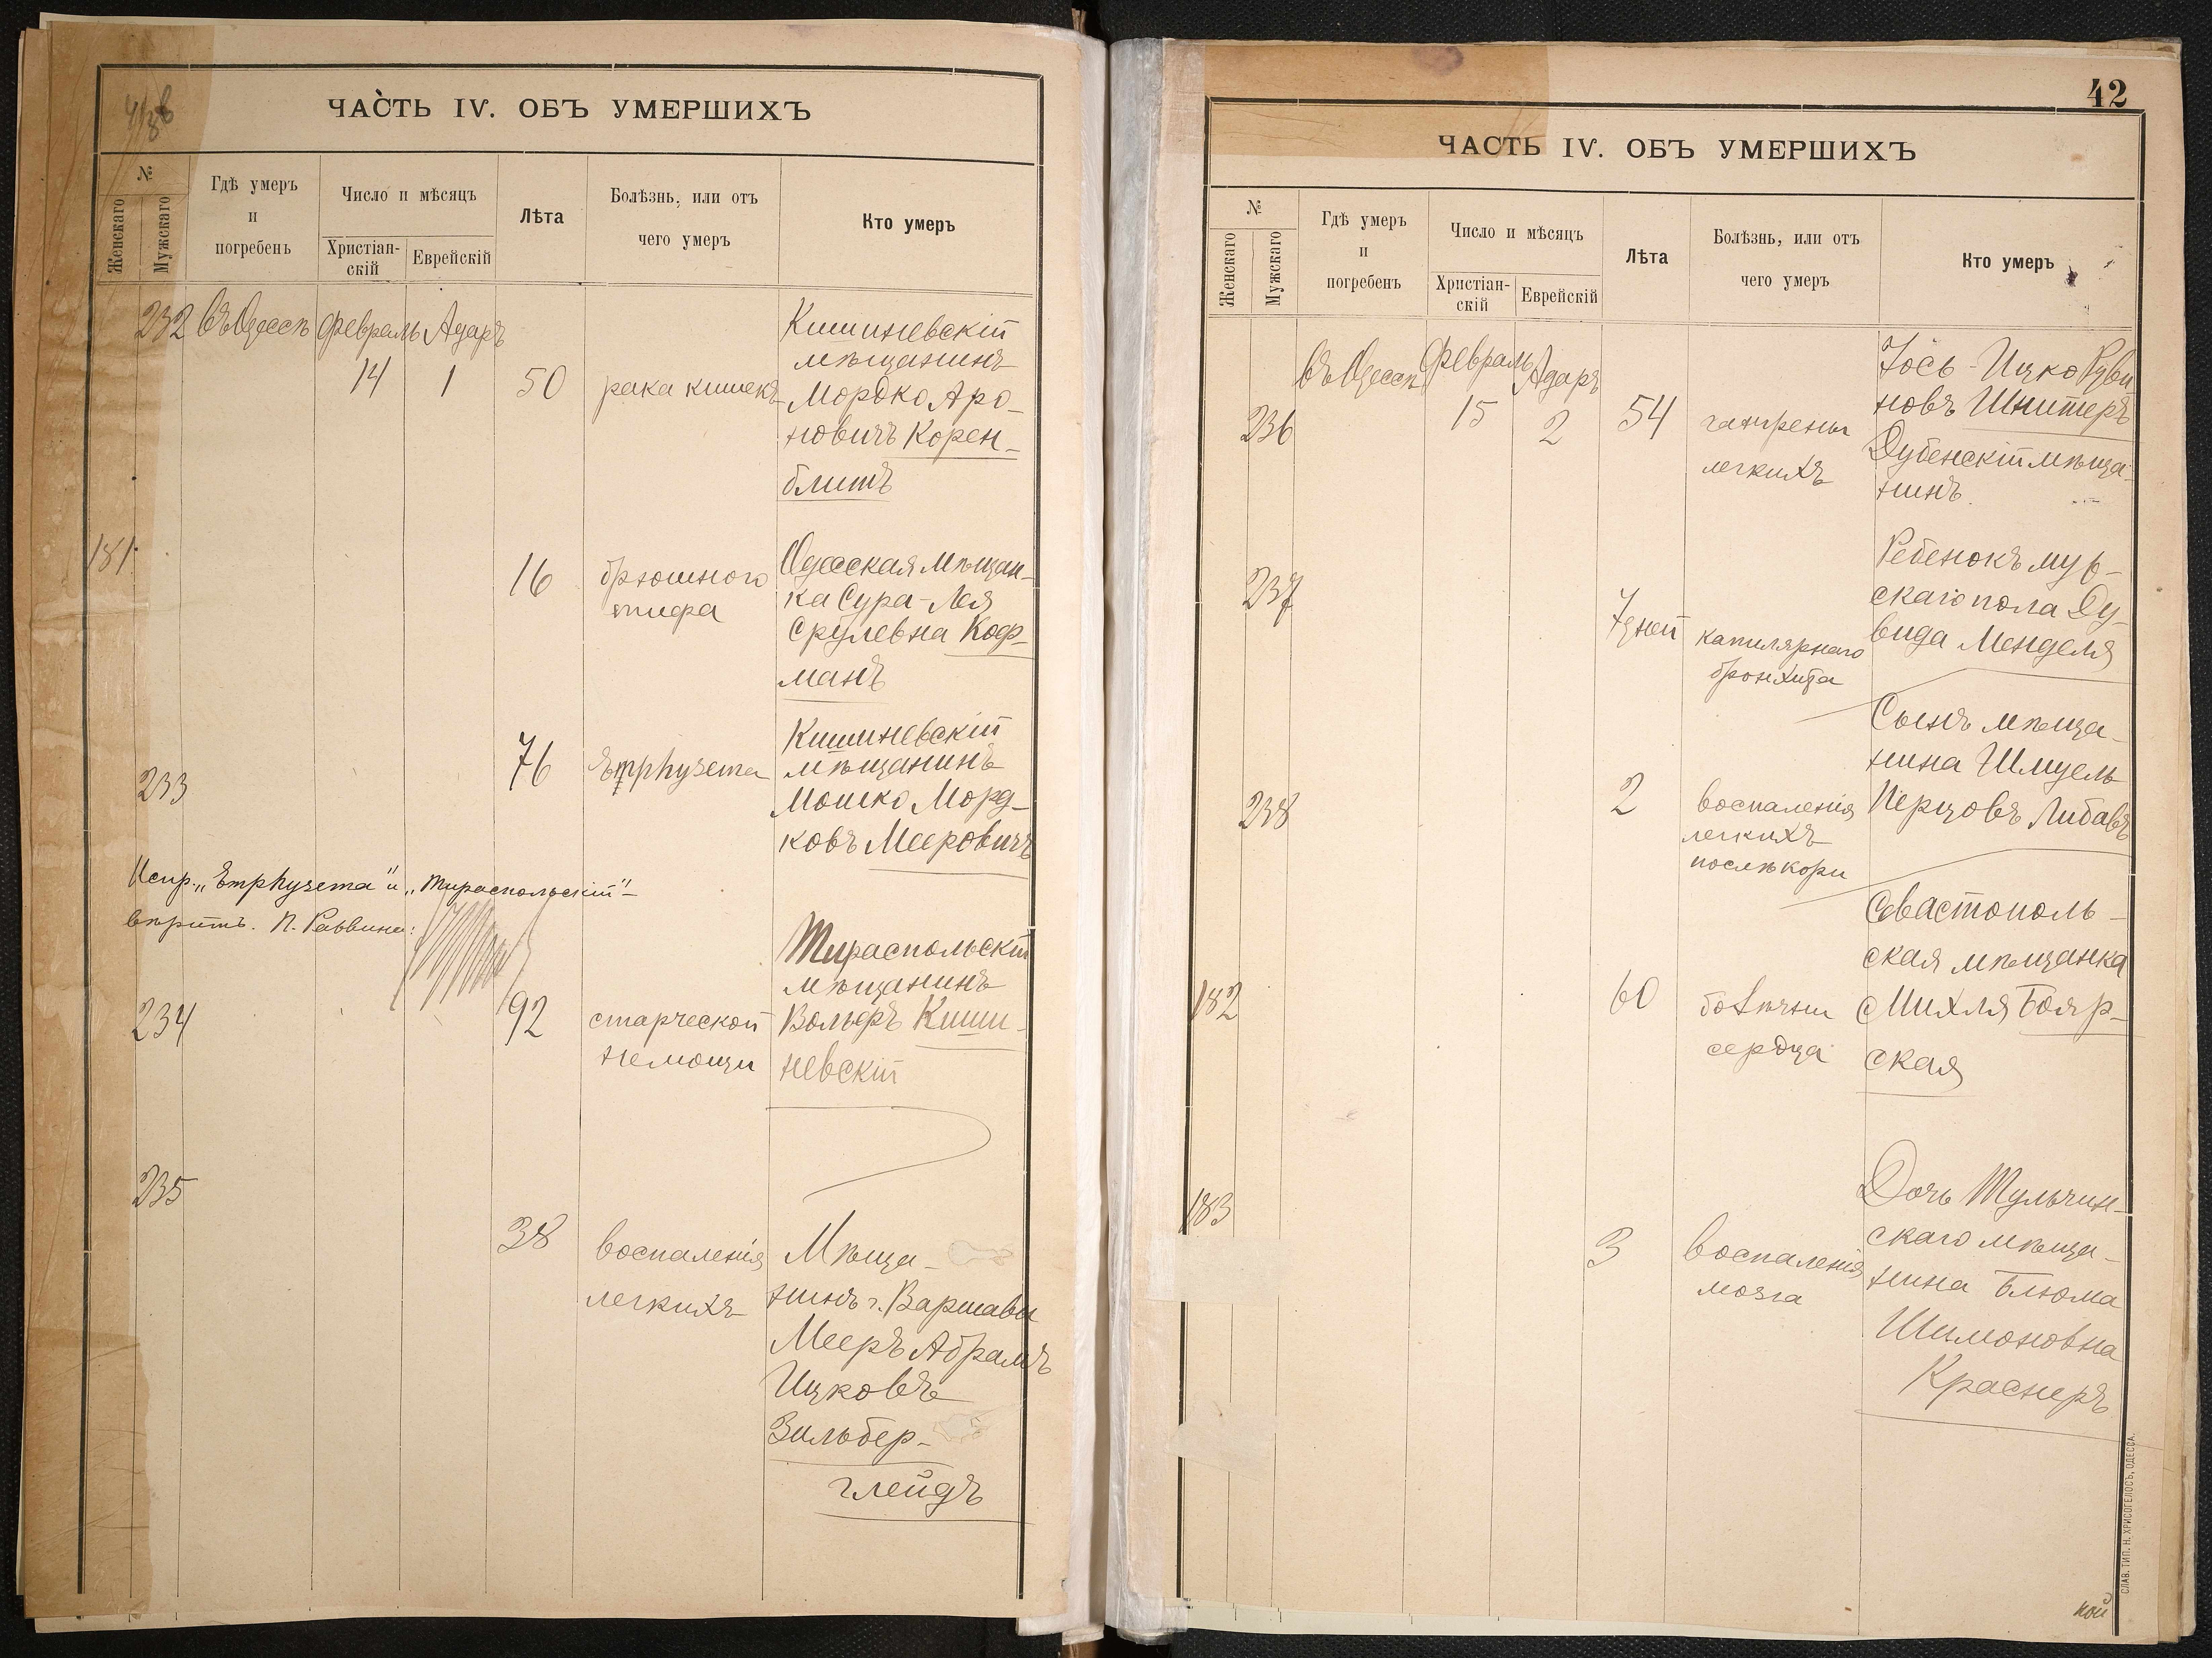 ЧАСТЬ IV. ОБЪ УМЕРШИХЪ
№
Женскаго
Мужскаго
Гдѣ умеръ
и
погребенъ
Число и мѣсяцъ
Христіан-
скій
Еврейскій
Лѣта
Болѣзнь, или отъ
чего умеръ
Кто умеръ
232 Въ Одессѣ Февраль Адаръ
14 1 50 рака кишекъ
Кишиневскій
мѣщанинъ
Мордко Аро-
новичъ Корен-
блитъ
181
16 брюшного
тифа
Одесская мѣщан-
ка Сура-Лея
Срулевна Коф-
манъ
233
76 Emphysema
Кишиневскій
мѣщанинъ
Мошко Морд-
ковъ Мееровичъ
Испр. „Emphysema" и „Тираспольскій"
вѣрить. П. Раввина:
234
92 старческой
немощи
Тираспольскій
мѣщанинъ
Вольфъ Киши-
невскій
235
38 воспаленія
легкихъ
Мѣща-
нинъ г. Варшавы
Мееръ Абрамъ
Ицковъ
Зильбер-
глейдъ
42
ЧАСТЬ IV. ОБЪ УМЕРШИХЪ
№
Женскаго
Мужскаго
Гдѣ умеръ
и
погребенъ
Число и мѣсяцъ
Христіан-
скій
Еврейскій
Лѣта
Болѣзнь, или отъ
чего умеръ
Кто умеръ
Въ Одессѣ Февраль Адаръ
236 15 2 54 гангрены
легкихъ
Іось-Ицко Руви
новъ Шнитеръ
Дубенскій мѣща-
нинъ.
237
7 дней капилярнаго
бронхита
Ребенокъ муж-
скаго пола Ду-
вида Менделя
238
2 воспаленія
легкихъ
послѣ кори
Сынъ мѣща-
нина Шмуель
Перцовъ Либавъ
182
60 болѣзни
сердца
Севастополь-
ская мѣщанка
Михля Бояр-
ская
183
3 воспаленія
мозга
Дочь Тульчин-
скаго мѣща-
нина Блюма
Шимоновна
Краснеръ
СЛАВ. ТИП. Н. ХРИСОГЕЛОСЪ, ОДЕССА.